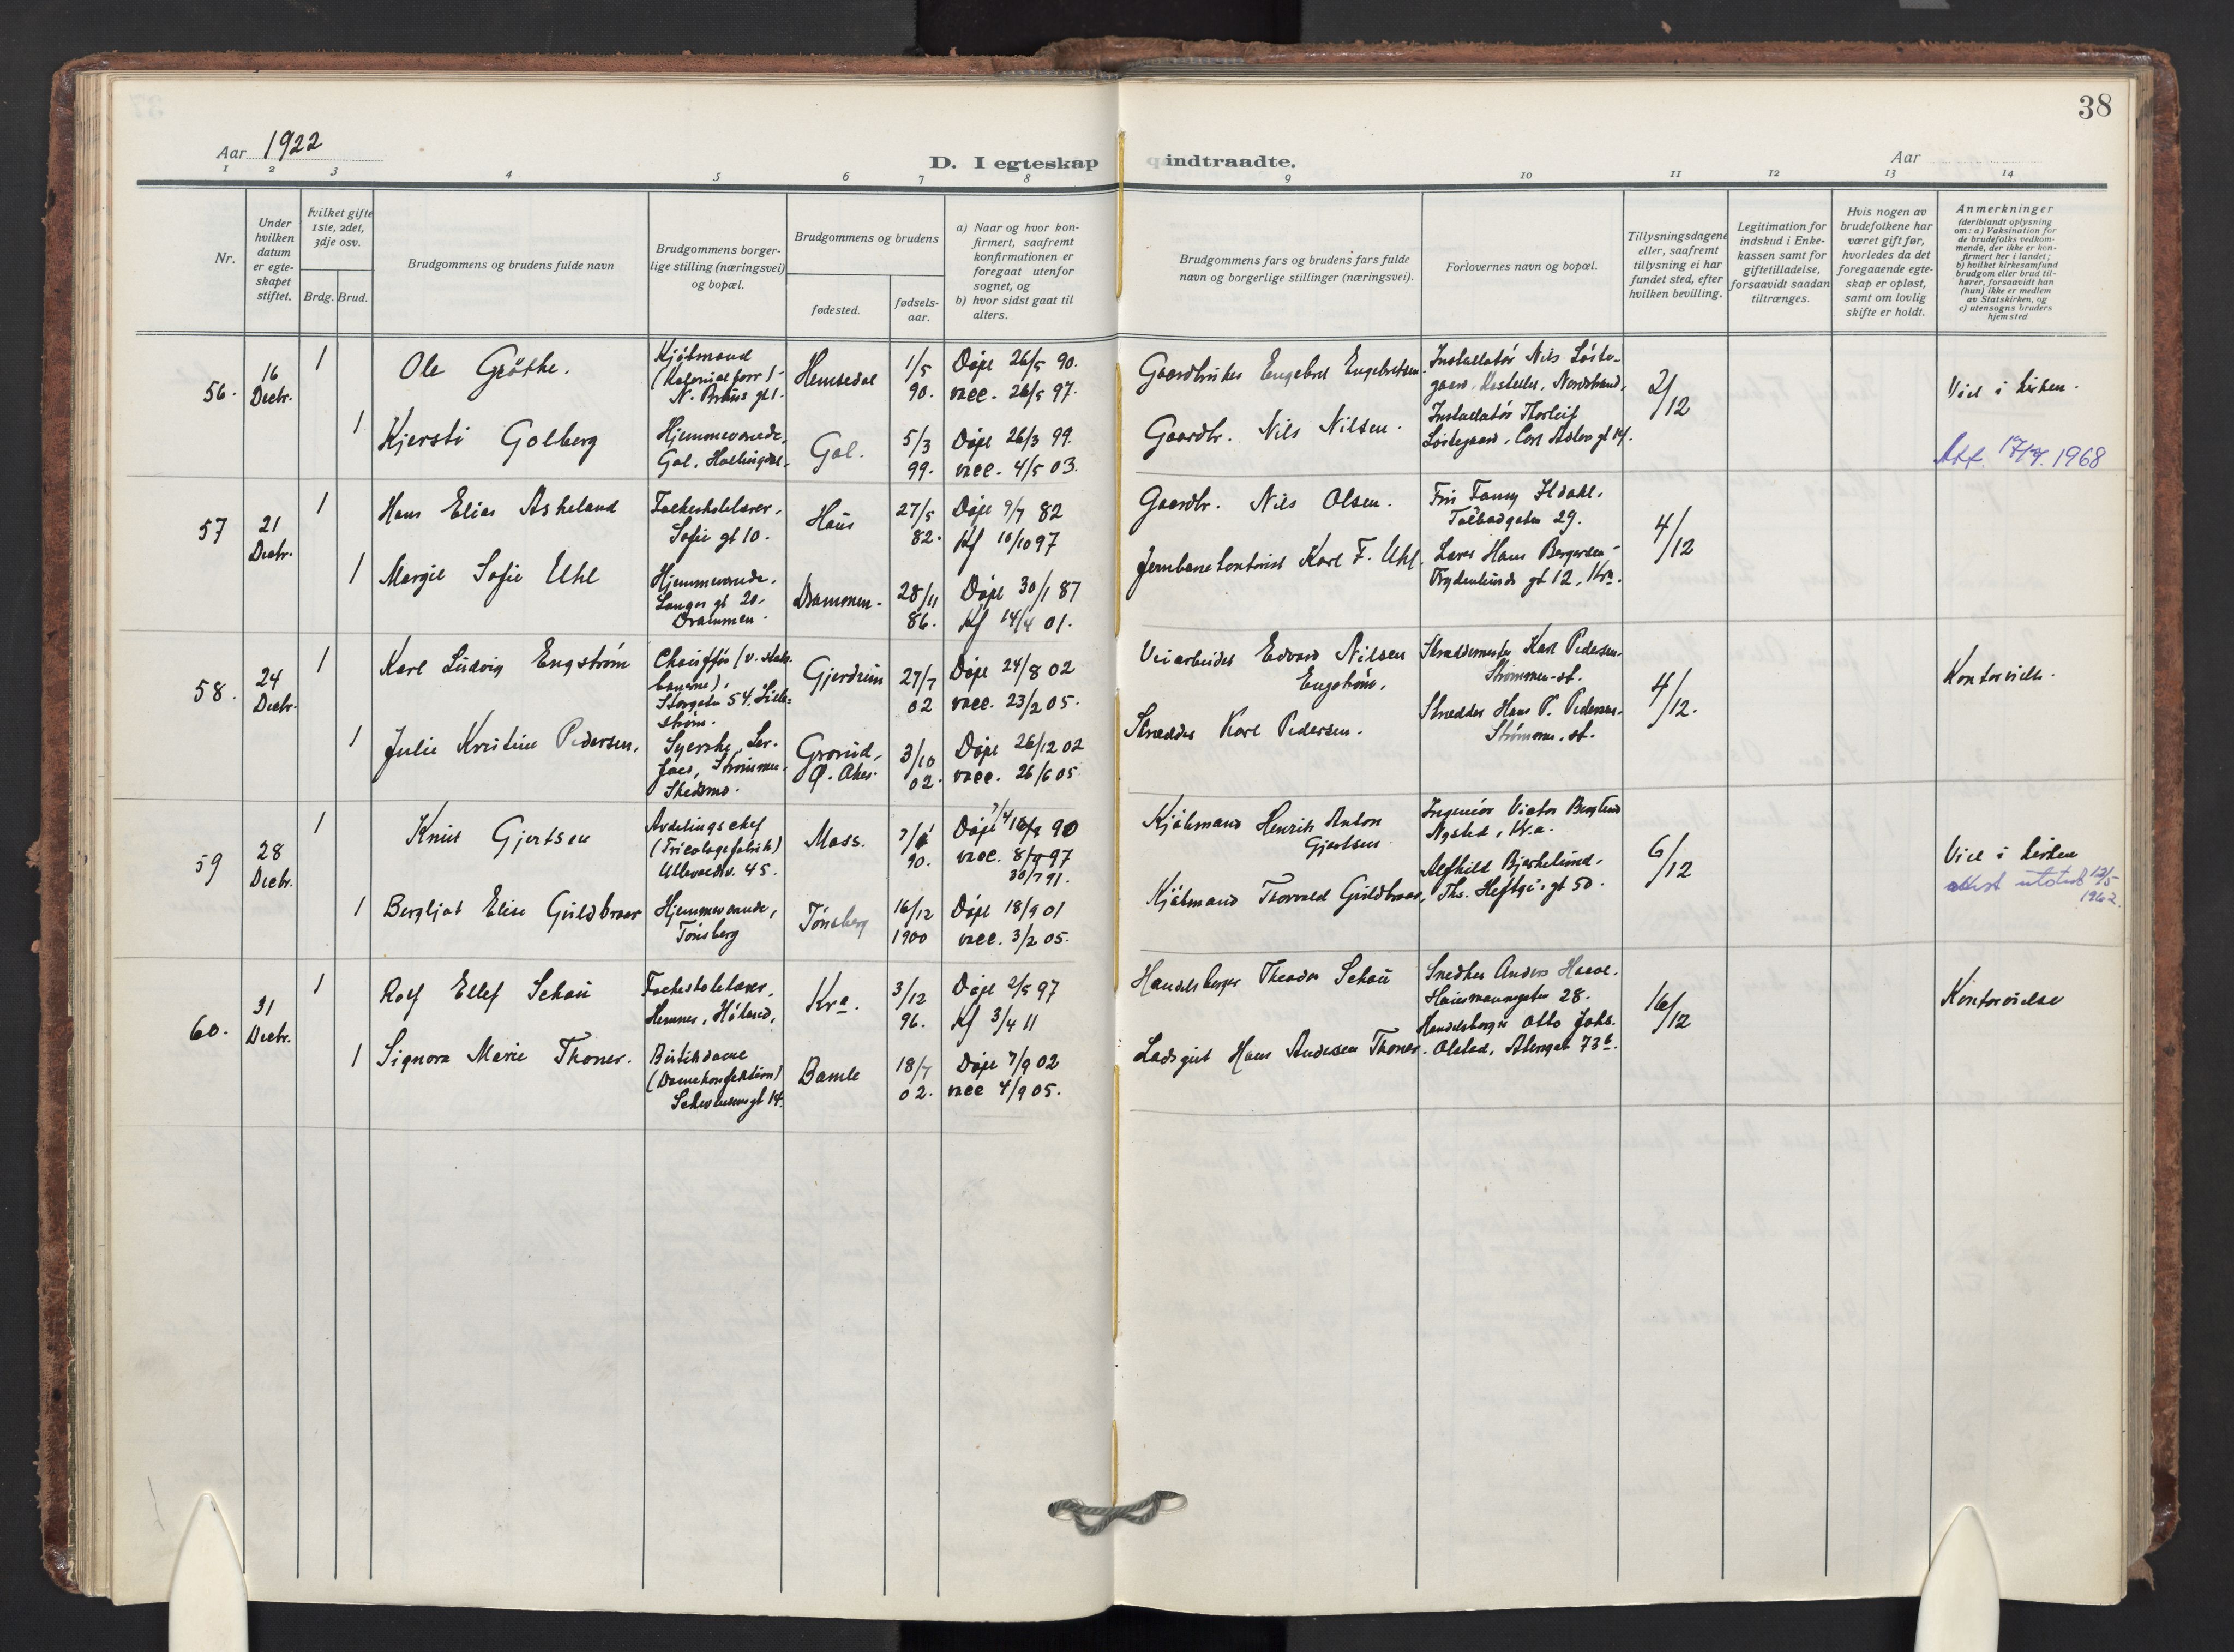 38
Aar 1922
D. I egteskap indtraadte.
Aar
1 2 3 4 5 6 7 8 9 10 11 12 13 14
Nr.
Under hvilken datum er egteskapet stiftet.
hvilket gifte 1ste, 2det, 3dje osv.
Brdg. Brud.
Brudgommens og brudens fulde navn
Brudgommens borgerlige stilling (næringsvei) og bopæl.
Brudgommens og brudens
fødested.
fødselsaar.
a) Naar og hvor konfirmert, saafremt konfirmationen er foregaat utenfor sognet, og
b) hvor sidst gaat til alters.
Brudgommens fars og brudens fars fulde navn og borgerlige stillinger (næringsvei).
Forlovernes navn og bopæl.
Tillysningsdagene eller, saafremt tillysning ei har fundet sted, efter hvilken bevilling.
Legitimation for indskud i Enkekassen samt for giftetilladelse, forsaavidt saadan tiltrænges.
Hvis nogen av brudefolkene har været gift før, hvorledes da det foregaaende egteskap er opløst, samt om lovlig skifte er holdt.
Anmerkninger
(deriblandt oplysning om: a) Vaksination for de brudefolks vedkommende, der ikke er konfirmert her i landet;
b) hvilket kirkesamfund brudgom eller brud tilhører, forsaavidt han (hun) ikke er medlem av Statskirken, og
c) utensogns bruders hjemsted
56. 16 Decbr.
1 Ole Grøthe.
Kjøbmand
(Kolonialforr.)
N. Bruns gt 1.
Hemsedal
1/5 90.
Døpt 26/5 90.
vacc. 26/5 97.
Gaardbruker Engebret Engebretsen.
Installatør Nils Løste-
gaard, Kastellet, Nordstrand.
2/12
Viet i kirken.
1 Kjersti Golberg
Hjemmeværende,
Gol, Hallingdal.
Gol.
5/3 99.
Døpt 26/3 99.
vacc. 4/5 03.
Gaardbr. Nils Nilsen.
Installatør Thorleif
Løstegaard, Carl Adlers gt 14.
Att. 17/7. 1968
57 21 Decbr.
1 Hans Elias Askeland
Folkeskolelærer,
Sofie gt 10.
Haus
27/5 82.
Døpt 9/7 82
Kf 10/10 97
Gaardbr. Nils Olsen.
Frk Fanny Ildahl.
Tolbodgaten 29.
4/12
1 Margit Sofie Uhl
Hjemmeværende,
Langes gt 20,
Drammen.
Drammen.
28/11 86.
Døpt 30/1 87
Kf 14/4 01.
Jernbanekontorist Karl F. Uhl.
Lærer Hans Bergersen
Frydenlunds gt 12, Kra.
58. 24 Decbr.
1 Karl Ludvig Engstrøm
Chauffør (v. stats-
banerne),
Storgaten 54, Lille-
strøm.
Gjerdrum
27/7 02
Døpt 24/8 02
vacc. 23/2 05.
Veiarbeider Edvard Nilsen
Engstrøm.
Skræddermester Karl Pedersen.
Strømmen st.
4/12.
Kontorvielse.
1 Julie Kristine Pedersen.
Syerske,
Strømmen,
Skedsmo.
Grorud,
Ø. Aker.
3/10 02.
Døpt 26/12 02
vacc. 26/6 05.
Skrædder Karl Pedersen.
Skrædder Hans P. Pedersen.
Strømmen st.
59 28 Decbr.
1 Knut Gjertsen
Avdelingschef
(Tricotagefabrik)
Ullevaalsv. 45.
Moss.
90.
Døpt 90
vacc. 8/9 97
30/7 91.
Kjøbmand Henrik Anton
Gjertsen
Ingeniør Victor Berglund
Nysted, Kr.a.
6/12
Viet i kirken
attest utstedt 12/5
1962.
1 Bergljot Elise Guldbraar
Hjemmeværende,
Tønsberg
Tønsberg
16/12 1900
Døpt 18/9 01
vacc. 3/2 05.
Kjøbmand Thorvald Guldbraar.
Alfhild Bjerkelund.
Ths. Heftyes gt 50.
60. 31 Decbr.
1 Rolf Ellef Schau
Folkeskolelærer,
Hemnes, Høland,
Kra.
3/12 96.
Døpt 2/5 97
Kf 3/4 11
Handelsborger Theodor Schau
Snedker Anders Haave.
Hausmannsgaten 28.
16/12
Kontorvielse
1 Signora Marie Thoner.
Butikdame
(Damekonfektion)
Schwensens gt 14.
Bamle
18/7 02.
Døpt 7/9 02
vacc 4/9 05.
Ladsgut Hans Andersen Thoner.
Handelsborger Otto Johs.
Olstad, Akersgt 73 b.